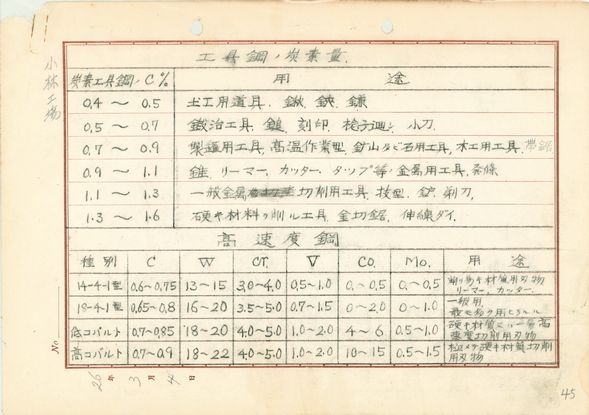 工具鋼ノ炭素量.
炭素工具鋼ノC% 用途
0.4 〜 0.5 土工用道具. 鍬 鋏 鎌
0.5 〜 0.7 鍛冶工具. 鎚. 刻印. 捻子廻シ 小刀.
0.7 〜 0.9 製罐用工具. 高温作業型. 鉱山及ビ石用工具. 木工用工具. 帯鋸
0.9 〜 1.1 錐. リーマー. カッター. タップ等. 金属用工具.
1.1 〜 1.3 一般金属切削用工具. 抜型. 鑢. 剃刀.
1.3 〜 1.6 硬キ材料ヲ削ル工具. 金切鋸. 伸線ダイ.
高速度鋼
種別 C W Cr. V Co. Mo. 用途
14-4-1型 0.6〜0.75 13〜15 3.0〜4.0 0.5〜1.0 0.〜0.5 0.〜0.5 削リ易キ材質用刃物
リーマー. カッター.
18-4-1型 0.65〜0.8 16〜20 3.5〜5.0 0.7〜1.5 0〜2.0 0〜1.0 一般用
最モ多ク用ヒラル
低コバルト 0.7〜0.85 18〜20 4.0〜5.0 1.0〜2.0 4〜6 0.5〜1.0 硬キ材質 一層高
速度切削用刃物
高コバルト 0.7〜0.9 18〜22 4.0〜5.0 1.0〜2.0 10〜15 0.5〜1.5 極メテ硬キ材質切削
用刃物
小林工場
No
26年3月4日
45